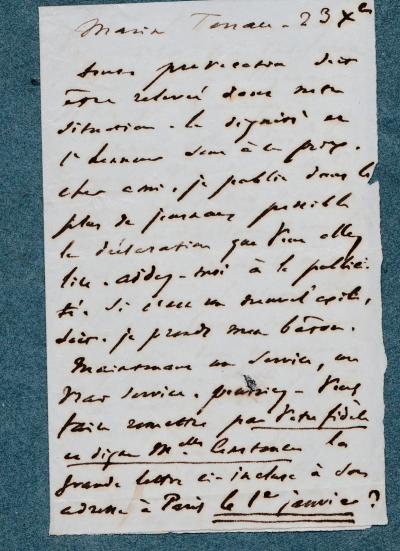 Marine Terrace - 23 Xbre
toute provocation doit
être relevée dans notre
situation. la dignité et
l'honneur sont à ce prix.
cher ami, je publie dans le
plus de journaux possible
la déclaration que vous allez
lire. aidez-moi à la publici-
té. Si c'est un nouvel exil,
soit. je prends mon bâton.
Maintenant un service, un
vrai service. pourriez-vous
faire remettre par votre fidèle
et digne Melle Constance la
grande lettre ci-incluse à son
adresse à Paris le 1er janvier ?